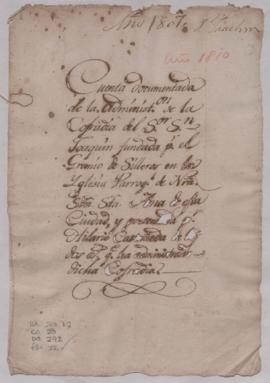 Año 1810
Cuenta documentada
de la Administ.on de la
Cofradia del S.or S.n
Joaquin fundada p.r el
Gremio de Silleros en la
Yglesia Parroq.l de Nra
Sra Sta Ana de esta
Ciudad, y presentada p.r
Hilario
dos a.s q.e ha administrado
dicha Cofradia